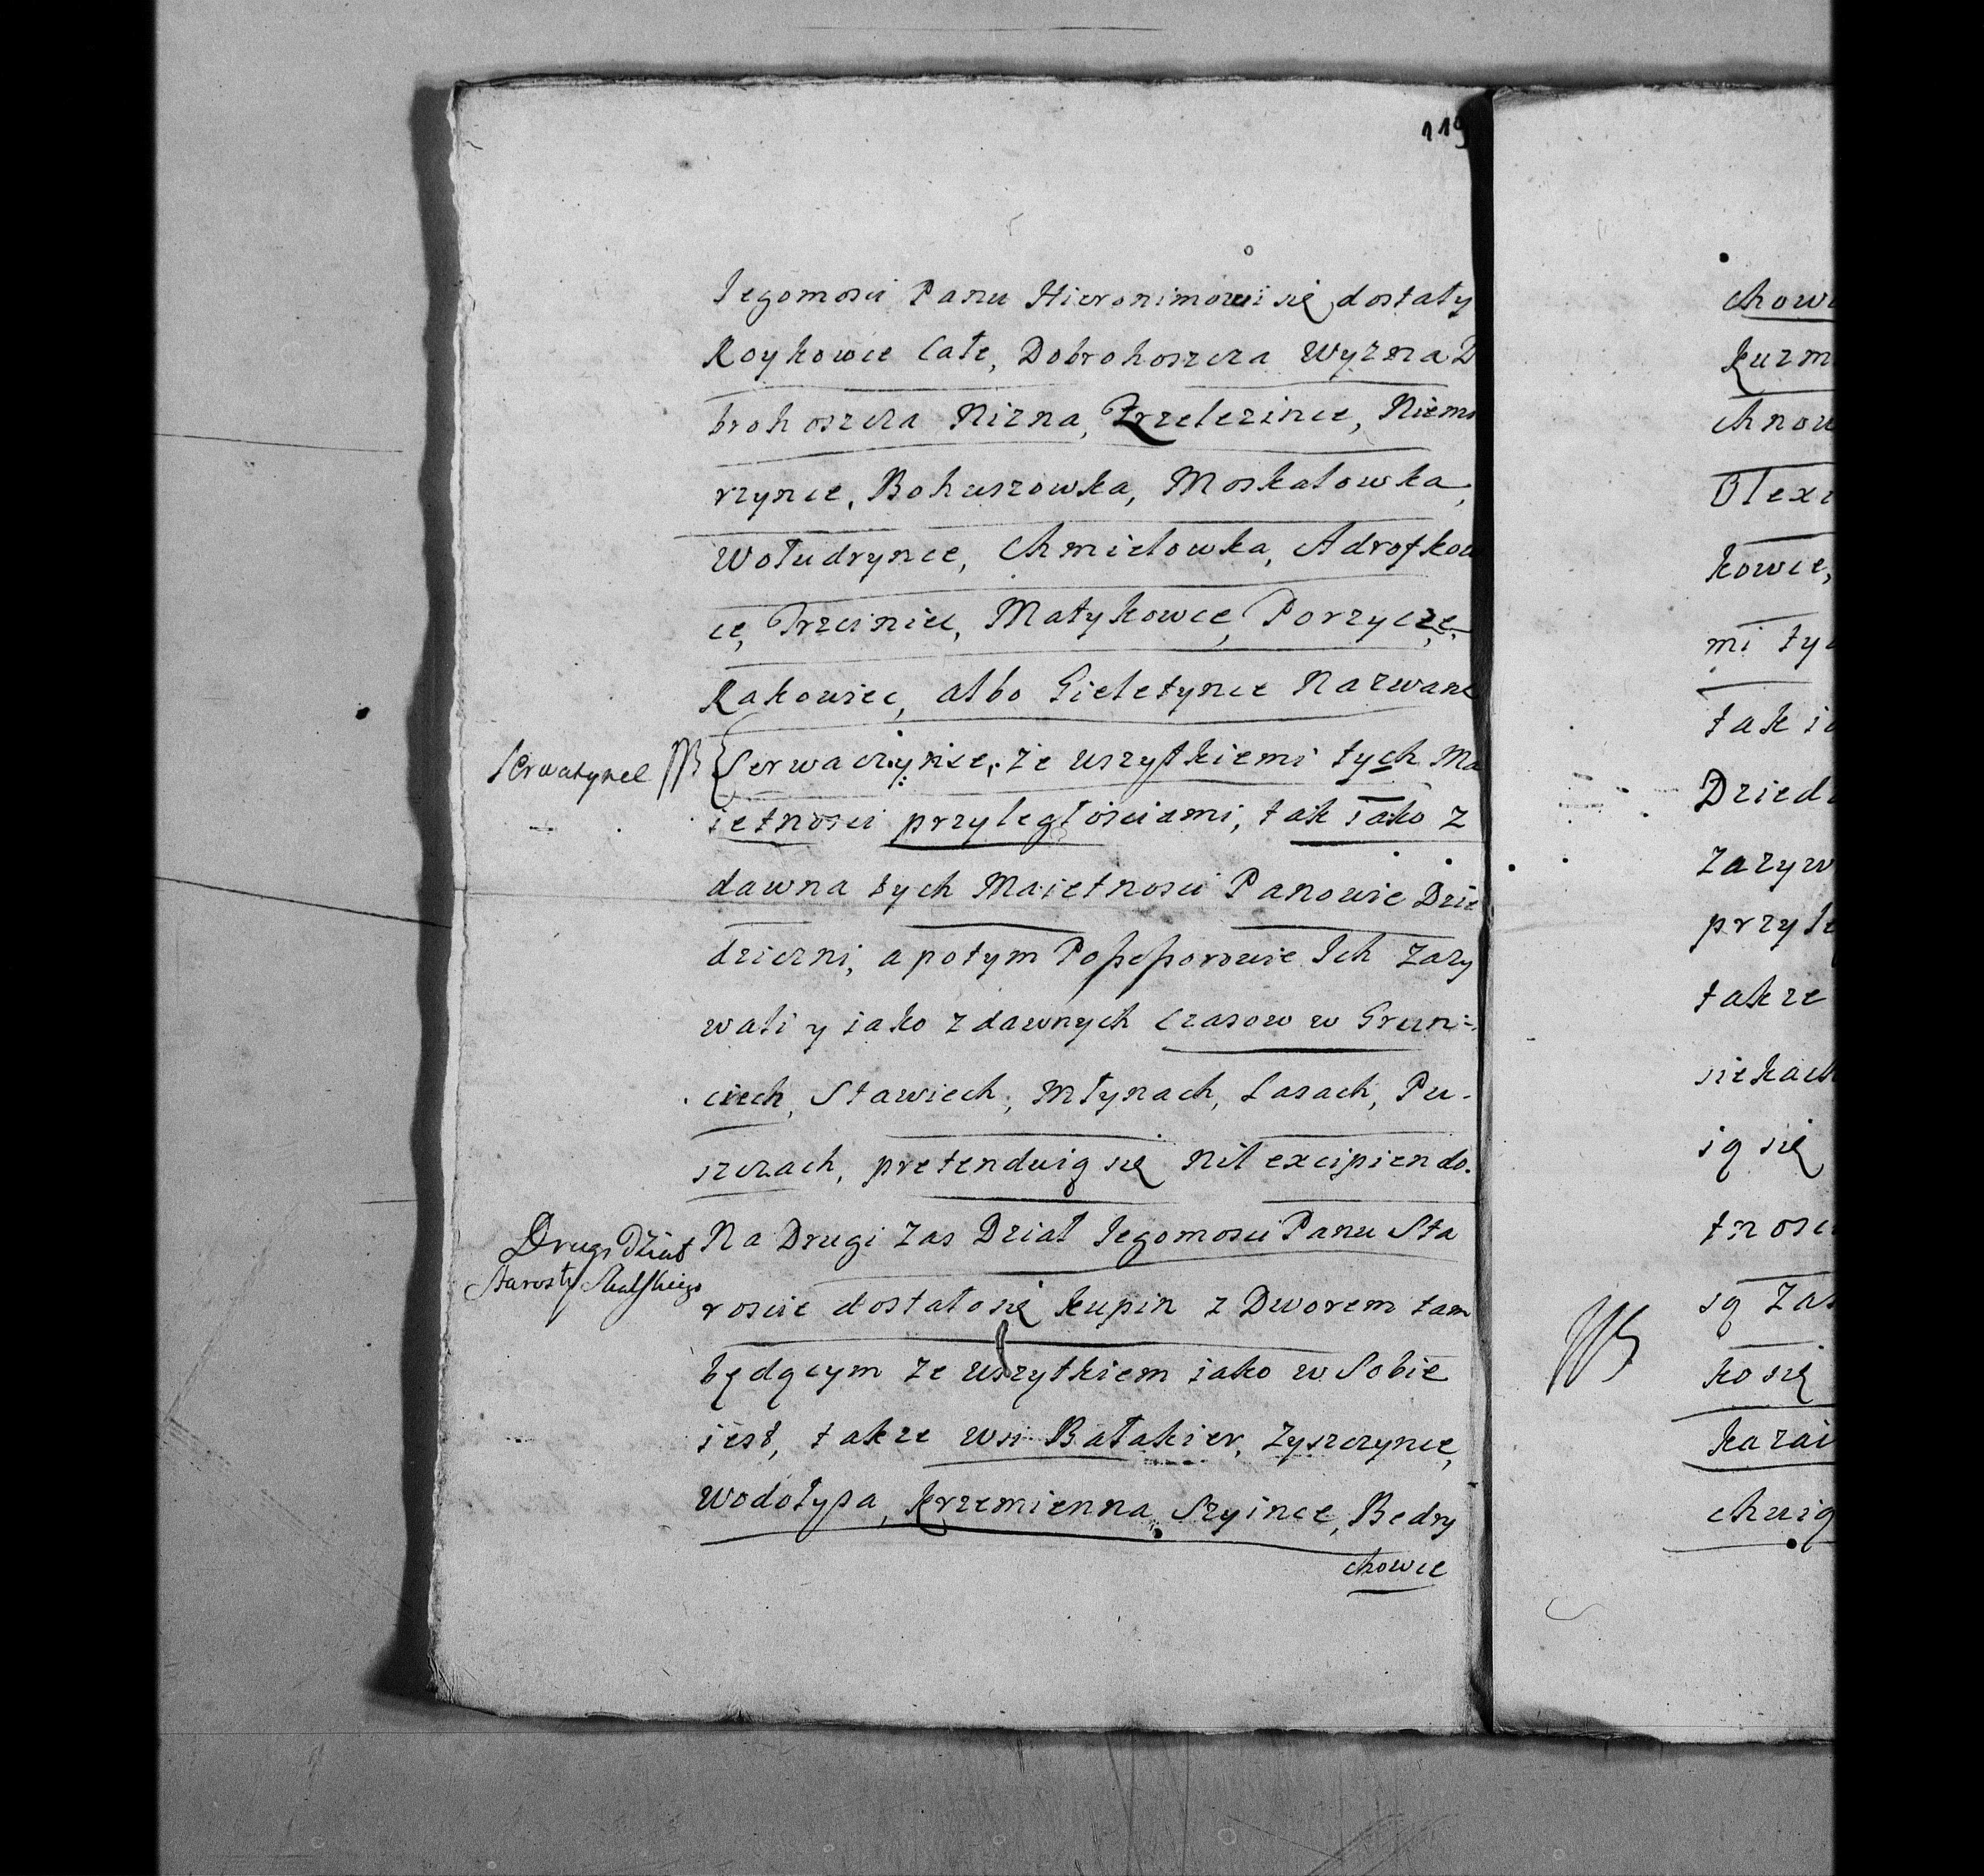 119
Jegomosci Panu Hieronimowi się dostały
Roykowce Całe, Dobrohoszcza Wyzna D
brohoszcza Nizna, Niem
rzynce, Bohuszowka, Moskalowka,
Wołudrynce, Chmielowka, Adrofkow
ce, Trzciniec, Matykowce, Porzycze,
Rakowiec, albo Gieletynce Nazwane
Serwatynce
Serwaczynce, ze wszytkiemi tych Ma
ietnosci przyległosciami, tak iako z
dawna tych Maietnosci Panowie Dzie
dziczni, a potym Possessorowie Ich Zazy
wali y iako z dawnych Czasow w Grun=
ciech, Stawiech, Młynach, Lasach, Pu-
szczach, pretenduią się nil excipiendo.
Drugi Dział
Starosty
Na Drugi Zas Dział Jegomosci Panu Sta
roscie dostało się Kupin z Dworem tam
będącym ze wszytkiem iako w Sobie
iest, takze wsi Bałakier, Zyszczynce,
Wodołypa, Krzemienna, Szyince, Bedry
chowce
chow
Kuzm
chnow
Olex
kowce,
mi tyc
tak i
Dziedz
Zazyw
przyle
takze
siekach
ią się
tnosc
są Zas
ko się
kazai
chuią